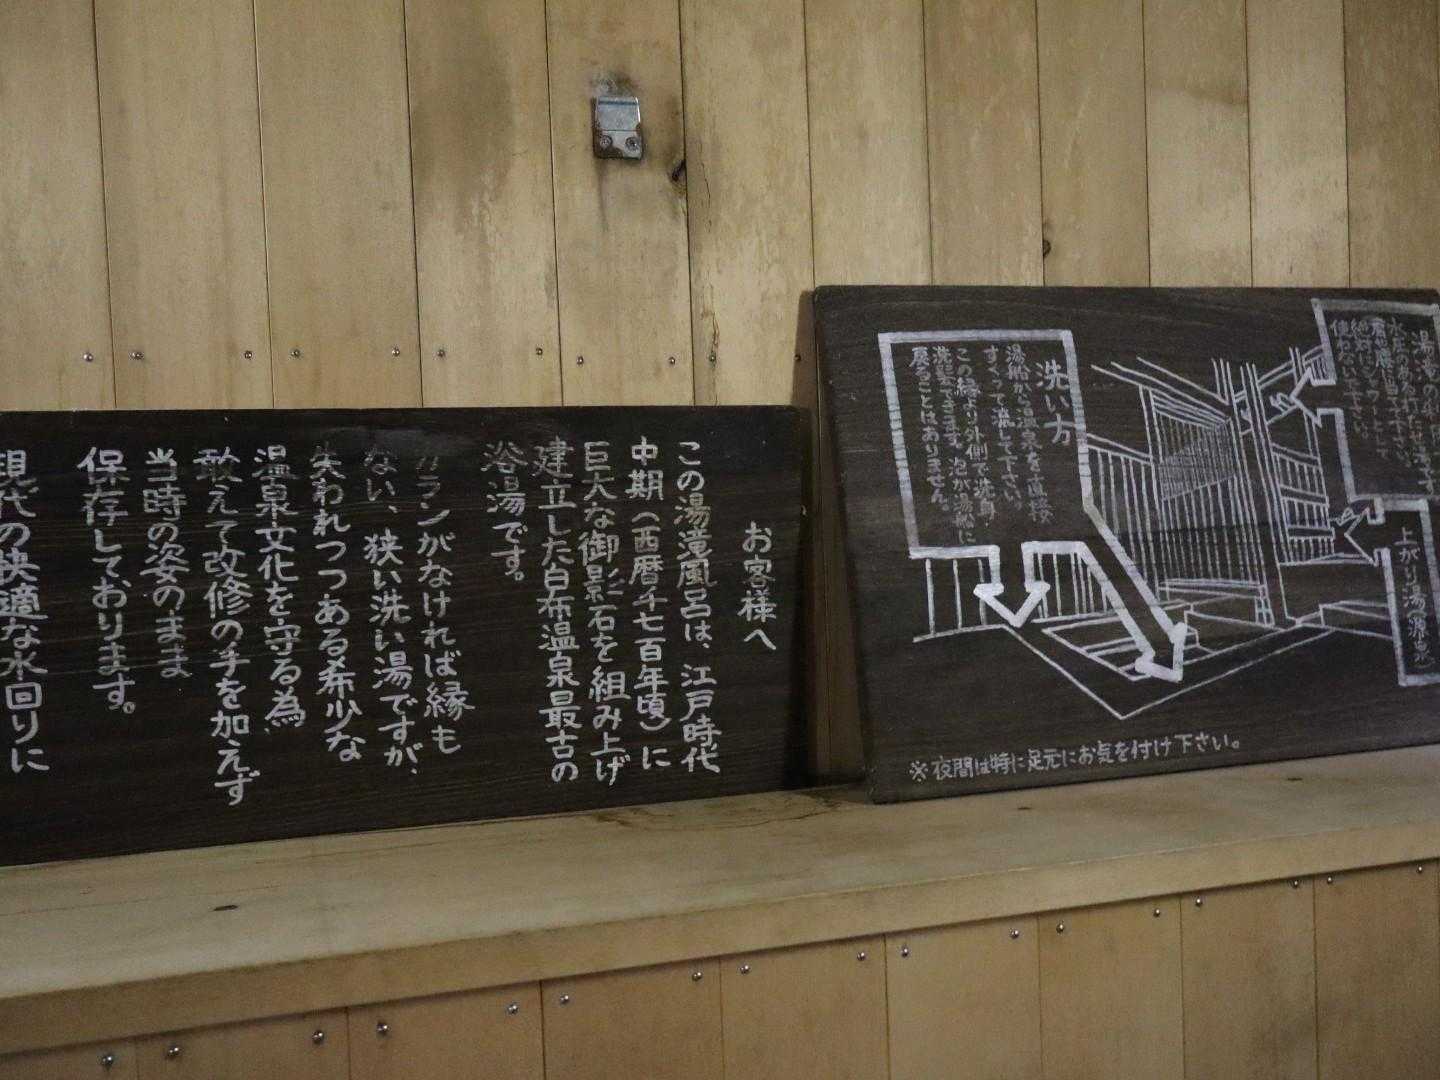 お客様へ
この湯滝風呂は、江戸時代
中期(西暦千七百年頃)に
巨大な御影石を組み上げ
建立した白布温泉最古の
浴湯です。
ランがなければ縁も
ない、狭い洗い湯ですが、
失われつつある希少な
温泉文化を守る為
敢えて改修の手を加えず
当時の姿のまま
保存しております。
現代の快適な水回りに
洗い方
湯船から温泉を直接
すくって流して下さい。
この縁より外側で洗身・
洗髪できます。泡が湯船に
戻ることはありません。
上がり湯(源泉)
※夜間は特に足元にお気を付け下さい。